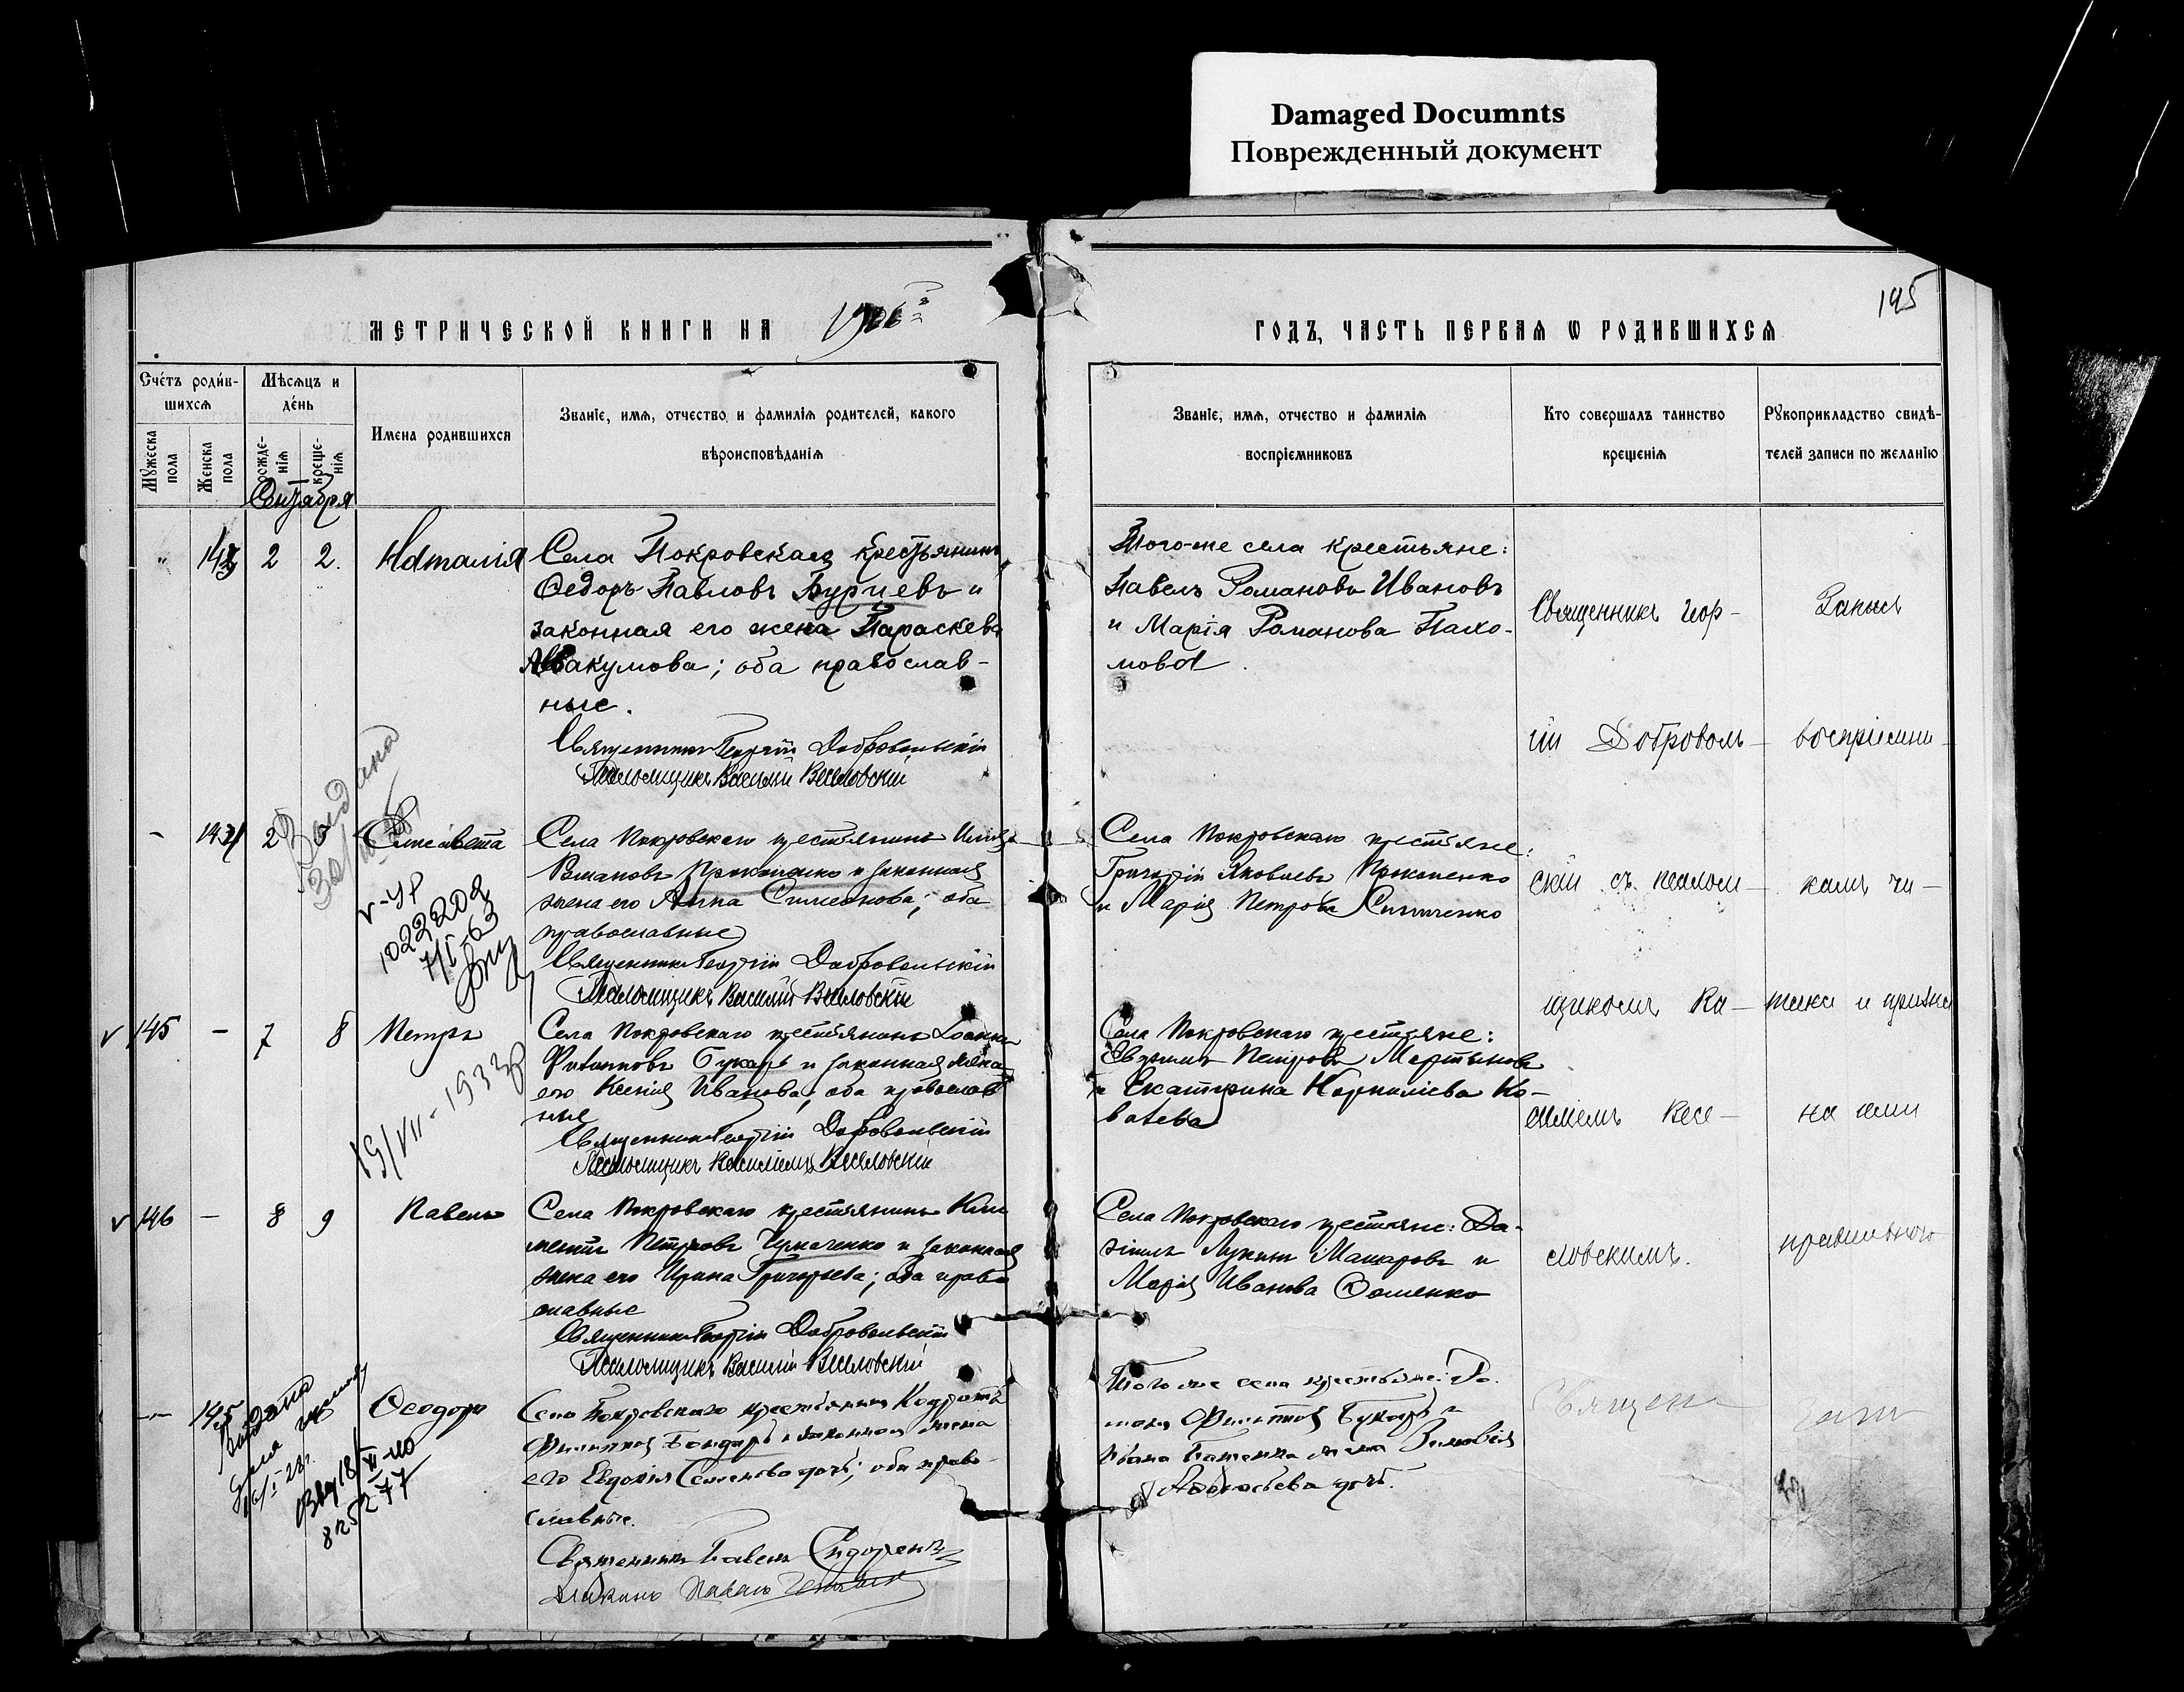 Damaged Documnts
Поврежденный документ
195
МЕТРИЧЕСКОЙ КНИГИ НА 1906
ГОДЪ, ЧАСТЬ ПЕРВАЯ Ѡ РОДИВШИХСЯ
Счétъ роди́в-
шихся
Мужеска пола
Женска пола
Мѣсяцъ и
де́нь
рожде-
нія
креще-
нія
Имена родившихся
Званіе, имя, отчество, и фамилія родителей, какого
вѣроисповѣданія
Званіе, имя, отчество и фамилія
воспріемниковъ
Кто совершалъ таинство
крещенія
Рукоприкладство свидѣ-
телей записи по желанію
Сентября
" 143 2 2. Наталія
Села Покровскаго крестьянинъ
Ѳедоръ Павловъ Бурцевъ и
законная его жена Параскева
Аввакумова; оба православ-
ные.
Священникъ Георгій Добровольскій
Псаломщикъ Василій Веселовскій
Того-же села крестьяне:
Павелъ Романовъ Ивановъ
и Марія Романова Пахо-
мова.
Священникъ Геор-
ій Доброволь-
скій съ псалом-
щикомъ Ва-
силіемъ Весе-
ловскимъ.
Запись
воспріемни-
камъ чи-
тана и
на ими
правильною
- 144 2 Елисавета
Выдана
1022209
7/I-63
Села Покровскаго крестьянинъ
Романовъ Прокопенко и законная
жена его Анна Симеонова; оба
православные
Священникъ Георгій Добровольскій
Псаломщикъ Василій Веселовскій
Села Покровскаго крестьяне:
Григорій Яковлевъ Прокопенко
и Марія Петрова
145 - 7 8 Петръ
19/VII-1933
Села Покровскаго крестьянинъ Іоаннъ
Филипповъ Букарь и законная жена
его Ксенія Иванова; оба православ
ные
Священникъ Георгій Добровольскій
Псаломщикъ Василій Веселовскій
Села Покровскаго крестьяне:
Евфимъ Петровъ Мартыновъ
и Екатерина Корнилієва Ко-
валева
146 - 8 9 Павелъ
Села Покровскаго крестьянинъ Кли
ментъ Петровъ Чумаченко и законная
жена его Ирина Григорьева; оба право
славные
Священникъ Георгій Добровольскій
Псаломщикъ Василій Веселовскій
Села Покровскаго крестьяне: Да-
ніилъ Лукинъ Макаровъ и
Марія Иванова Фоменко
- 145 Ѳеодора
Выдана
18/VI-40
825277
Села Покровскаго крестьянинъ Кодратъ
Филипповъ Бондарь и законная жена
его Евдокія Семенова дочь; оба право-
славные.
Священникъ Павелъ Сидоренко
Діаконъ Павелъ
Того же села крестьяне: Ро-
манъ Филипповъ Букарь и
Ивана жена Зиновія
дочь.
Священ
Запи